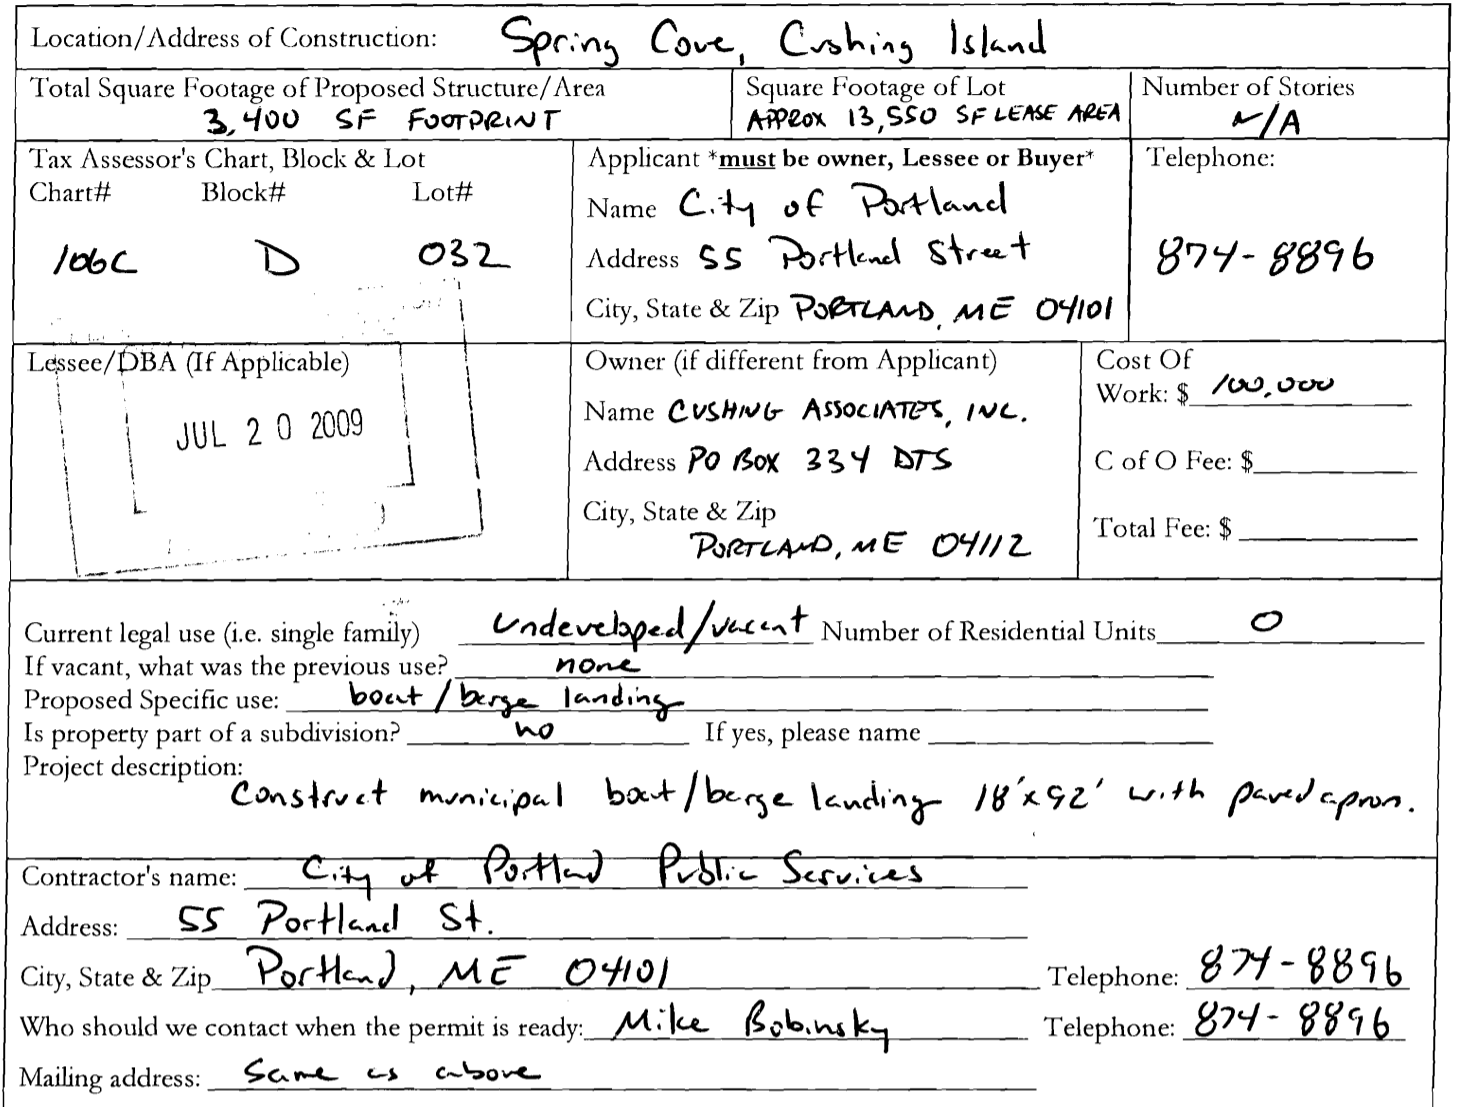 Location/Address of Construction: Spring Cove, Cushing Island
Total Square Footage of Proposed Structure/Area
3,400 SF FOOTPRINT
Square Footage of Lot
APPROX 13,550 SF LEASE AREA
Number of Stories
N/A
Tax Assessor's Chart, Block & Lot
Chart# Block# Lot#
106C D 032
Applicant *must be owner, Lessee or Buyer*
Name City of Portland
Address 55 Portland Street
City, State & Zip PORTLAND, ME 04101
Telephone:
874-8896
Lessee/DBA (If Applicable)
JUL 20 2009
Owner (if different from Applicant)
Name CUSHING ASSOCIATES, INC.
Address PO BOX 334 DTS
City, State & Zip
PORTLAND, ME 04112
Cost Of
Work: $ 100,000
C of O Fee: $
Total Fee: $
Current legal use (i.e. single family) undeveloped/vacant Number of Residential Units 0
If vacant, what was the previous use? none
Proposed Specific use: boat/barge landing
Is property part of a subdivision? no If yes, please name
Project description:
Construct municipal boat/barge landing 18'x92' with paved apron.
Contractor's name: City of Portland Public Services
Address: 55 Portland St.
City, State & Zip Portland, ME 04101 Telephone: 874-8896
Who should we contact when the permit is ready: Mike Bobinsky Telephone: 874-8896
Mailing address: Same as above